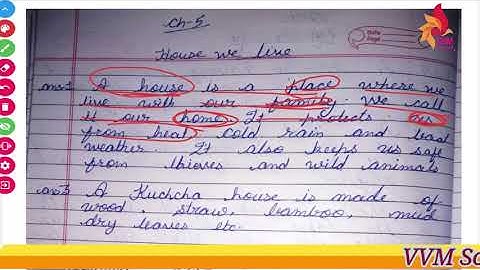 Ch-5
House we live
Date
Page
Ans1 A house is a place where we
live with our family. We call
it our home. It protects us
from heat, cold rain and bad
weather. It also keeps us safe
from thieves and wild animals
Ans3 A Kuchcha house is made of
wood, straw, bamboo, mud
dry leaves etc.
VVM Sc